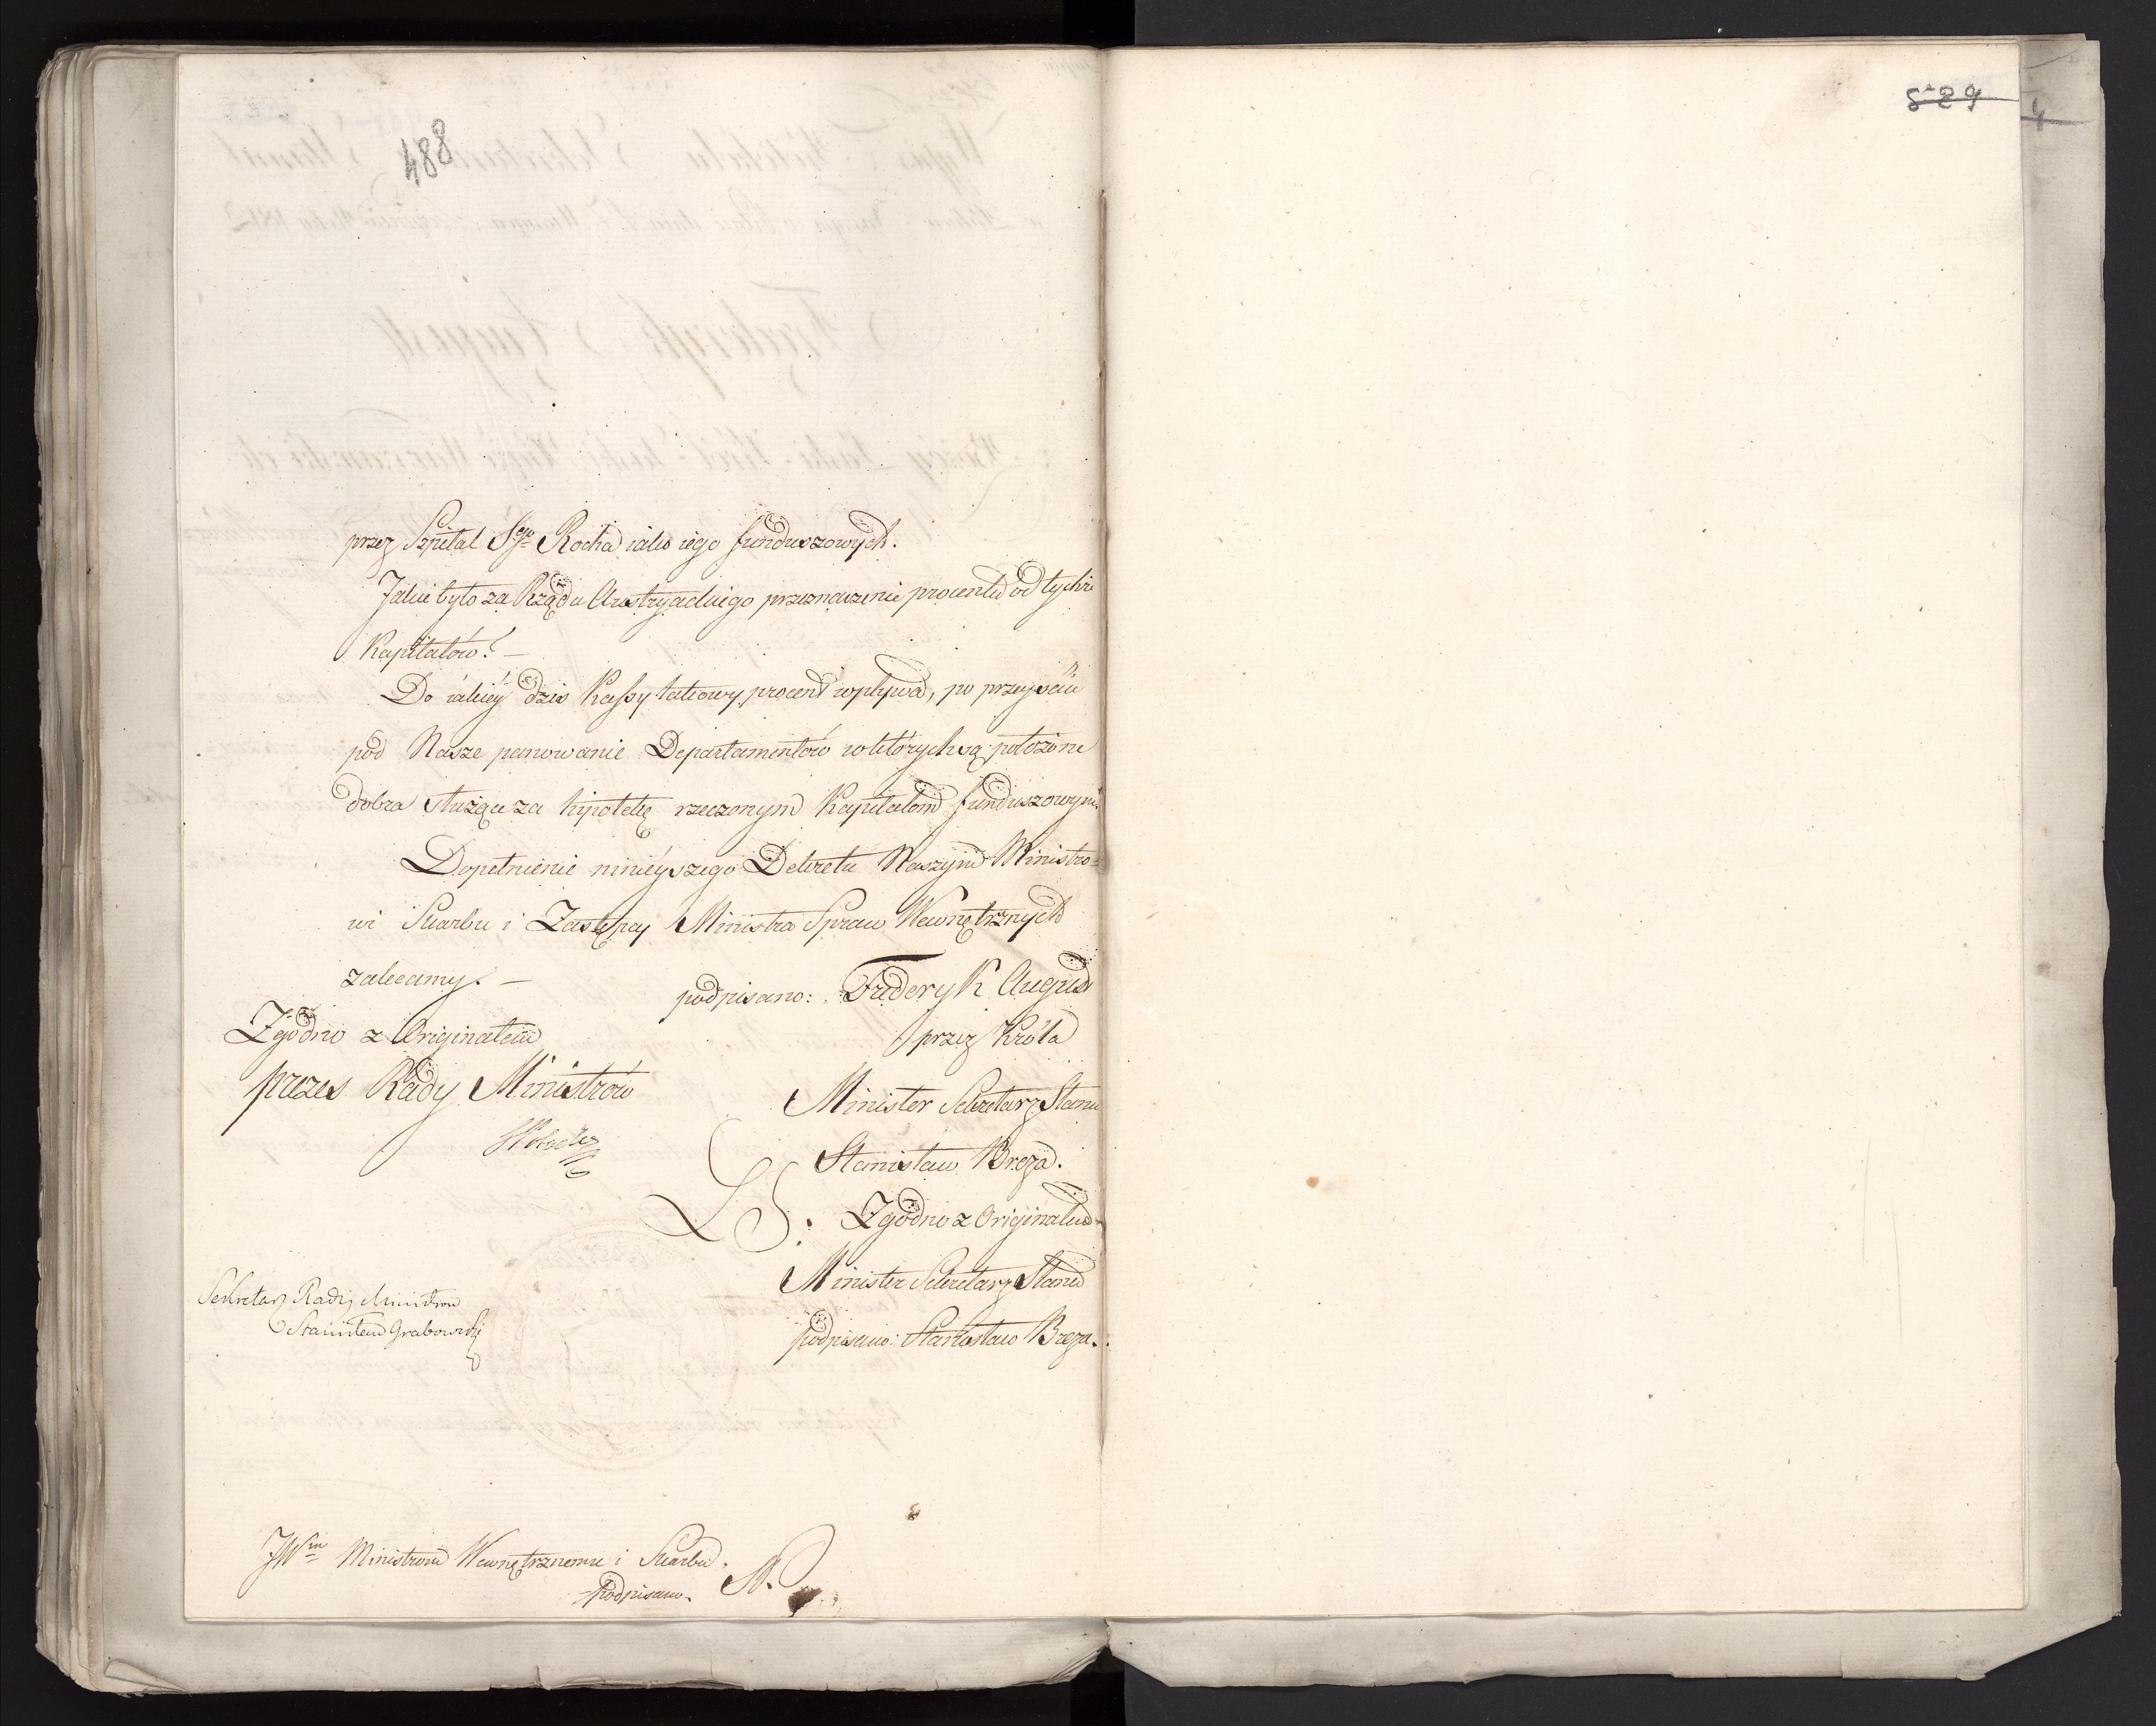 488
przez Szpital Sgo Rocha iako iego funduszowych.
Jakie było za Rządu Austryackiego przeznaczenie procentu od tychże
Kapitałów? –
Do iakiéy dziś Kassy takowy procent wpływa, po przeyściu
pod Nasze panowanie Departamentów w których są położone
dobra służące za hipotekę rzeczonym Kapitałom funduszowym.
Dopełnienie ninieyszego Dekretu Naszym Ministro=
wi Skarbu i Zastępcy Ministra Spraw Wewnętrznych
zalecamy. –
podpisano: Fryderyk August
Zgodno z Originałem
przez Króla
prezes Rady Ministrów
Minister Sekretarz Stanu
Stanisław Breza.
LS: Zgodno z Originałem
Minister Sekretarz Stanu
Sekretarz Rady Ministrow
Stanisław Grabowski
podpisano: Stanisław Breza.
JWm Ministrom Wewnętrznemu i Skarbu.
podpisano.
529
4